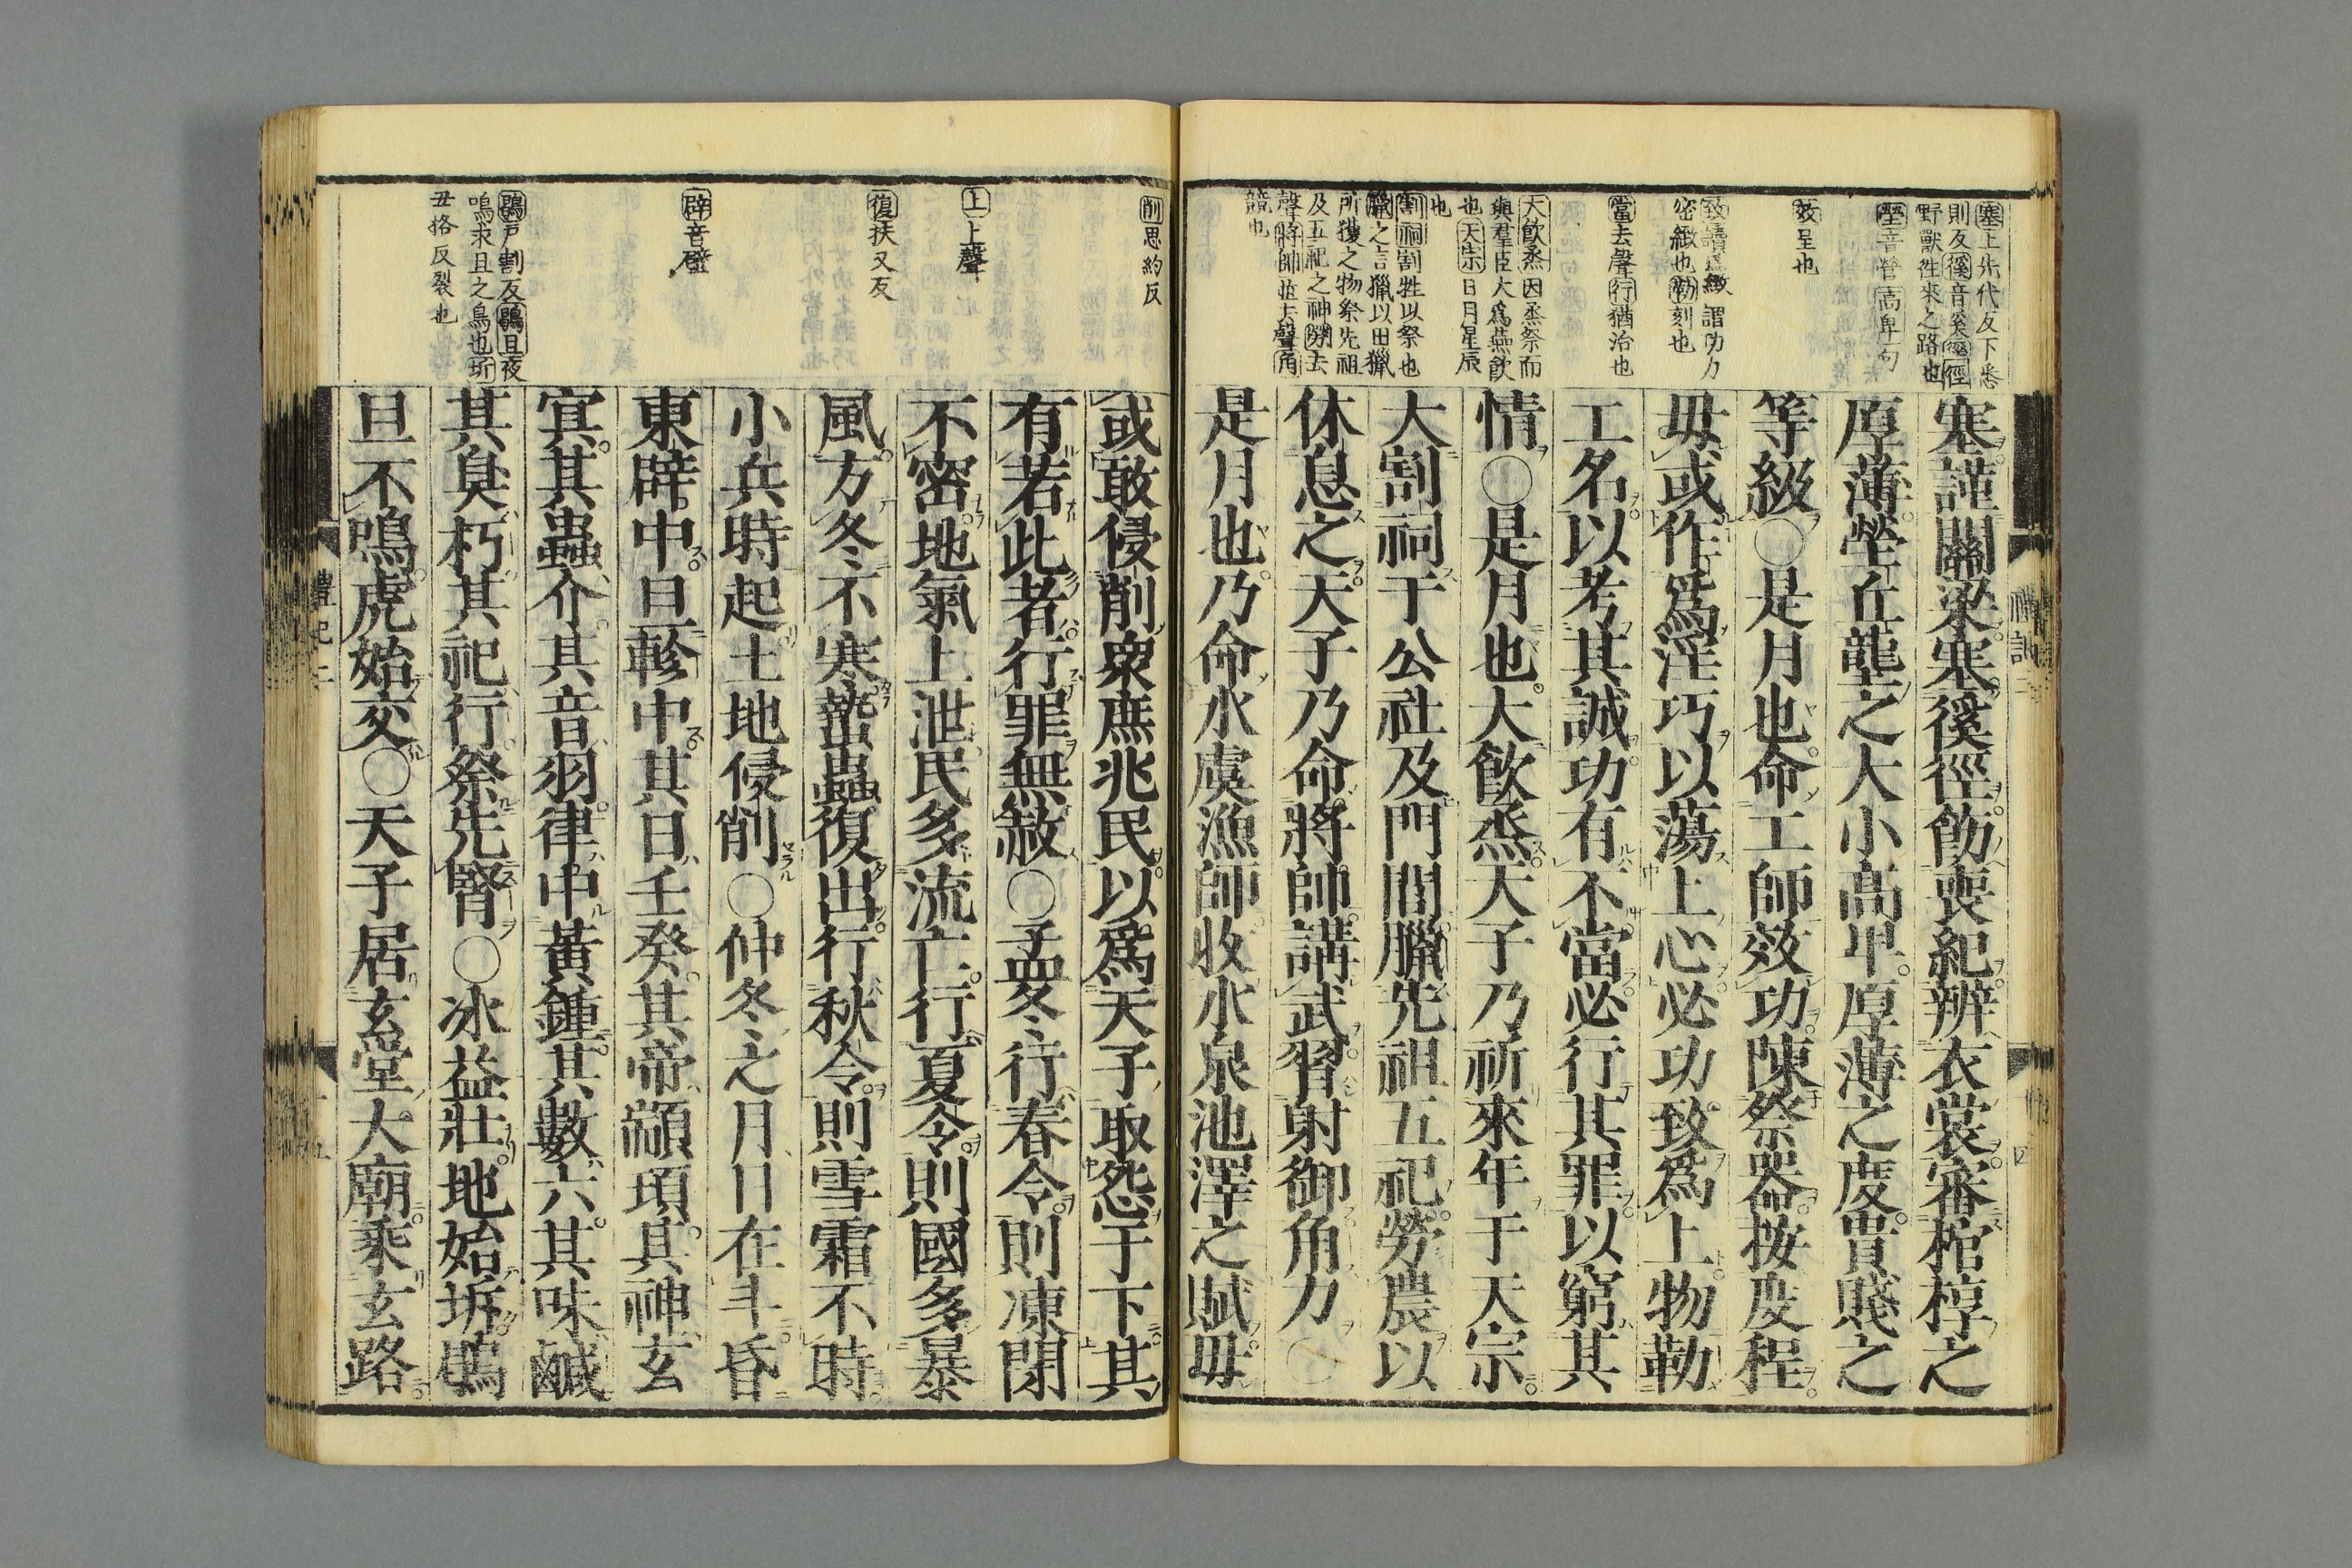 塞上先代反下悉
則反徯音奚徑
野獸徃來之路也
塋音營高卑句
效呈也
致讀爲緻謂功力
密緻也勒刻也
當去聲行猶治也
大飲烝因烝祭而
與羣臣大爲燕飮
也天宗日月星辰
也
割祠割牲以祭也
臘之言獵以田獵
所獲之物祭先祖
及五祀之神勞去
聲將帥並去聲角
競也
塞謹關梁塞徯徑飭喪紀辨衣裳審棺椁之
厚薄塋丘壟之大小高卑厚薄之度貴賤之
等級〇是月也命工師效功陳祭器按度程
毋或作爲淫巧以蕩上心必功致爲上物勒
工名以考其誠功有不當必行其罪以窮其
情〇是月也大飮烝天子乃祈來年于天宗
大割祠于公社及門閭臘先祖五祀勞農以
休息之天子乃命將帥講武習射御角力〇
是月也乃命水虞漁師收水泉池澤之賦毋
削思約反
上上聲
復扶又反
辟音壁
鶡戸割反鶡旦夜
鳴求旦之鳥也坼
丑格反裂也
或敢侵削衆庶兆民以爲天子取怨于下其
有若此者行罪無赦〇孟冬行春令則凍閉
不密地氣上泄民多流亡行夏令則國多暴
風方冬不寒蟄蟲復出行秋令則雪霜不時
小兵時起土地侵削〇仲冬之月日在斗昏
東辟中旦軫中其日壬癸其帝顓頊其神玄
冥其蟲介其音羽律中黃鍾其數六其味鹹
其臭朽其祀行祭先腎〇冰益壯地始坼鶡
旦不鳴虎始交〇天子居玄堂大廟乘玄路
禮記二